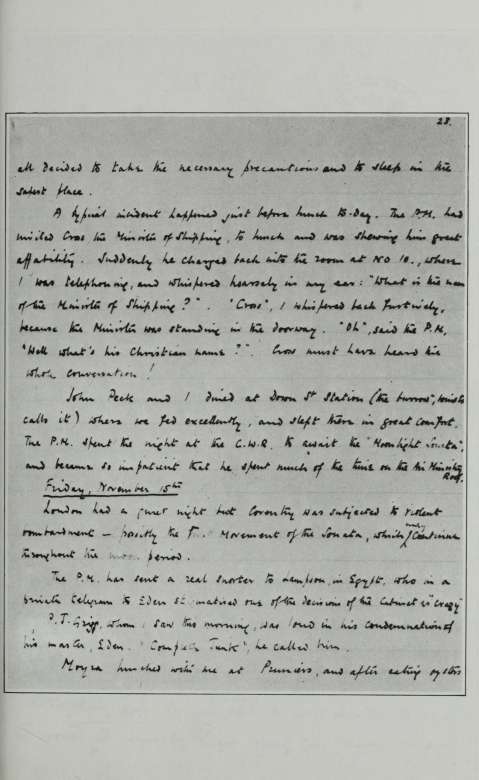 28.
all decided to take the necessary precautions and to sleep in the
safest place.
A typical incident happened just before lunch to-day. The P.M. had
invited Cross the Minister of Shipping, to lunch and was shewing him great
affability. Suddenly he charged back into the room at No 10., where
I was telephoning, and whispered hoarsely in my ear: "What is the name
of the Minister of Shipping?". "Cross", I whispered back furtively,
because the Minister was standing in the doorway. "Oh", said the P.M,
"Well what's his Christian name?". Cross must have heard the
whole conversation!
John Peck and I dined at Down St Station (the burrow", Winston
calls it) where we fed excellently, and slept there in great comfort.
The P.M. spent the night at the C.W.R. to await the "Moonlight Sonata",
and became so impatient that he spent much of the time on the Air Ministry
Roof.
Friday, November 15th
London had a quiet night but Coventry was subjected to violent
bombardment — possibly the Movement of the Sonata, which may continue
throughout the moon period.
The P.M. has sent a real snorter to Lampson, in Egypt, who in a
private telegram to Eden stigmatised one of the decisions of the Cabinet as "crazy"
P.J. Grigg, whom I saw this morning, was loud in his condemnation of
his master, Eden. "Complete Junk", he called him.
Moyra lunched with me at Pruniers, and after eating oysters